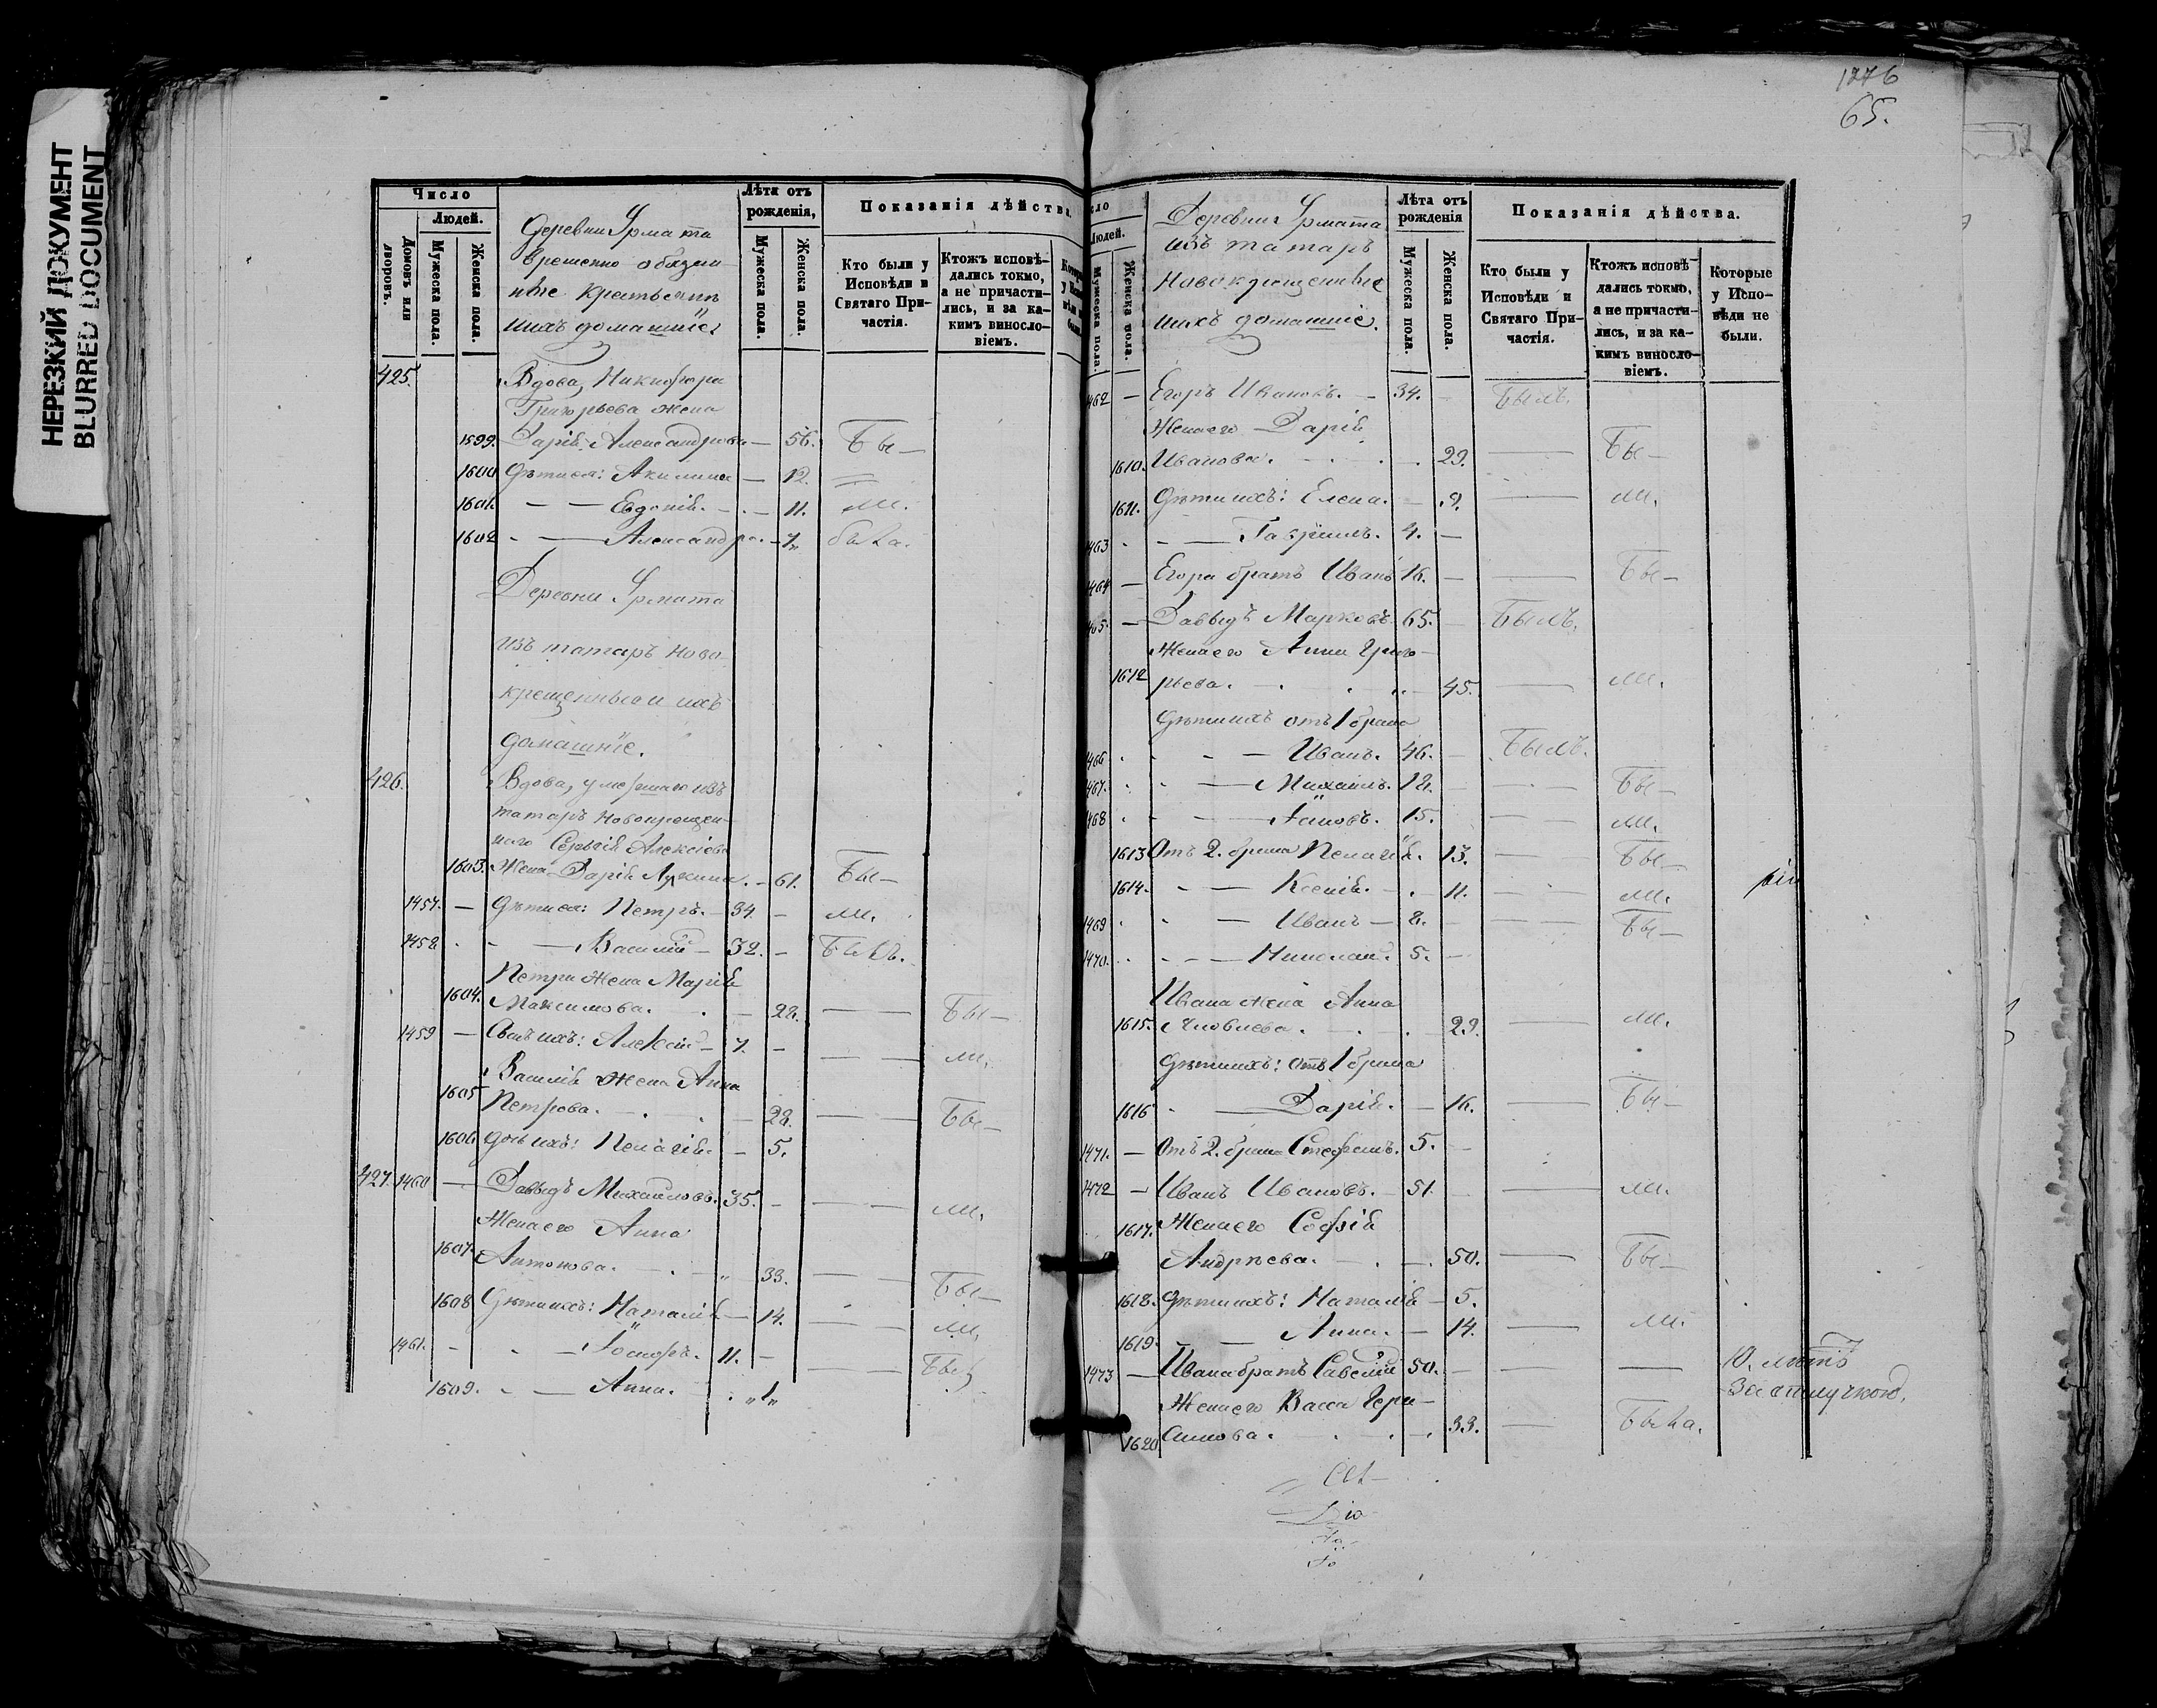 НЕРЕЗКИЙ ДОКУМЕНТ
BLURRED DOCUMENT
Число
Людей.
Домовъ или дворовъ.
Мужеска пола.
Женска пола.
Деревни Ярмата
временно обязан
ные крестьяне
и ихъ домашніе
Лѣта отъ
рожденія,
Мужеска пола.
Женска пола.
Показанія дѣйства.
Кто были у
Исповѣди и
Святаго При-
частія.
Ктожъ исповѣ-
дались токмо,
а не причасти-
лись, и за ка-
кимъ виносло-
віемъ.
425. Вдова, Никифора
Григорьева жена
1599. Дарія Александрова — 56. Бы —
1600 Дѣти ея: Акилина — 12.
1601. — — Евдокія. — 11. ли.
1602 — Александра. — 7. была.
Деревни Ярмата
изъ татаръ ново
крещенные и ихъ
домашніе.
426. Вдова, умершаго изъ
татаръ новокрещен
наго Сергія Алексіева
1603. жена Дарія Лукина. — 61. Бы —
1457. — Дѣти ея: Петръ. — 34. — ли.
1458 — Василій — 32. — Былъ.
Петра жена Марія
1604. Максимова. — 28. — Бы —
1459 — Сынъ ихъ: Алексій — 7. — ли.
Василія жена Анна
1605 Петрова. — 28. — Бы —
1606 дочь ихъ: Пелагія. — 5.
427. 1460 — Давыдъ Михайловъ. 35. — ли.
Жена его Анна
1607. Антонова. — 33. — Бы —
1608 Дѣти ихъ: Наталія — 14. — ли.
1461. — Іосифъ. 11. — Бы
1609. — Анна. „1„
1276
65.
Людей.
Мужеска пола.
Женска пола.
Деревни Ярмата
изъ татаръ
новокрещенные
и ихъ домашніе.
Лѣта отъ
рожденія
Мужеска пола.
Женска пола.
Показанія дѣйства.
Кто были у
Исповѣди и
Святаго При-
частія.
Ктожъ исповѣ
дались токмо,
а не причасти-
лись, и за ка-
кимъ виносло-
віемъ.
Которые
у Испо-
вѣди не
были.
1462 — Егоръ Ивановъ. — 34. — Былъ.
Жена его Дарія
1610. Иванова. — 29. — Бы —
1611. Дѣти ихъ: Елена. — 9. — ли.
1463 — Гавріилъ. 4. —
1464 — Егора братъ Иванъ 16. — Бы —
1465. — Давыдъ Марковъ. 65. — Былъ.
Жена его Анна Григо —
1612 рьева. — 45. — ли.
Дѣти ихъ отъ 1 брака
1466 — Иванъ. 46. — Былъ.
1467. — Михаилъ. 18. — Бы —
1468 — Іаковъ. 15. — ли.
1613 Отъ 2. брака Пелагія. 13. — Бы —
1614. — Ксенія. — 11. — ли.
1469 — Иванъ — 8. — Бы —
1470. — Николай. 5. —
Ивана жена Анна
1615. Яковлева. — 29. — ли.
Дѣти ихъ: отъ 1 брака
1616 — Дарія. — 16. — Бы —
1471. — Отъ 2. брака Стефанъ. 5. —
1472 — Иванъ Ивановъ. — 51. — ли.
1617. Жена его Софія
Андреева. — 50. — Бы —
1618. Дѣти ихъ: Наталія — 5.
1619. — Анна. — 14. — ли.
1473 — Ивана братъ Савелій 50. — 10. лѣтъ
за отлучкою.
Жена его Васса Гера —
1620 симова. — 33. — Была.